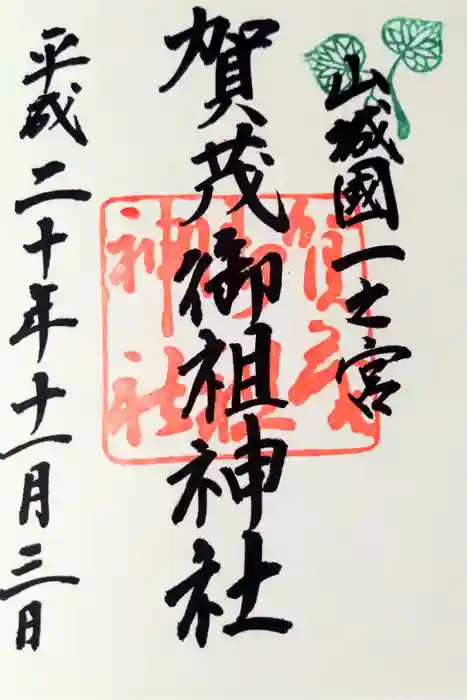 山城國一之宮
賀茂御祖神社
平成二十年十一月三日